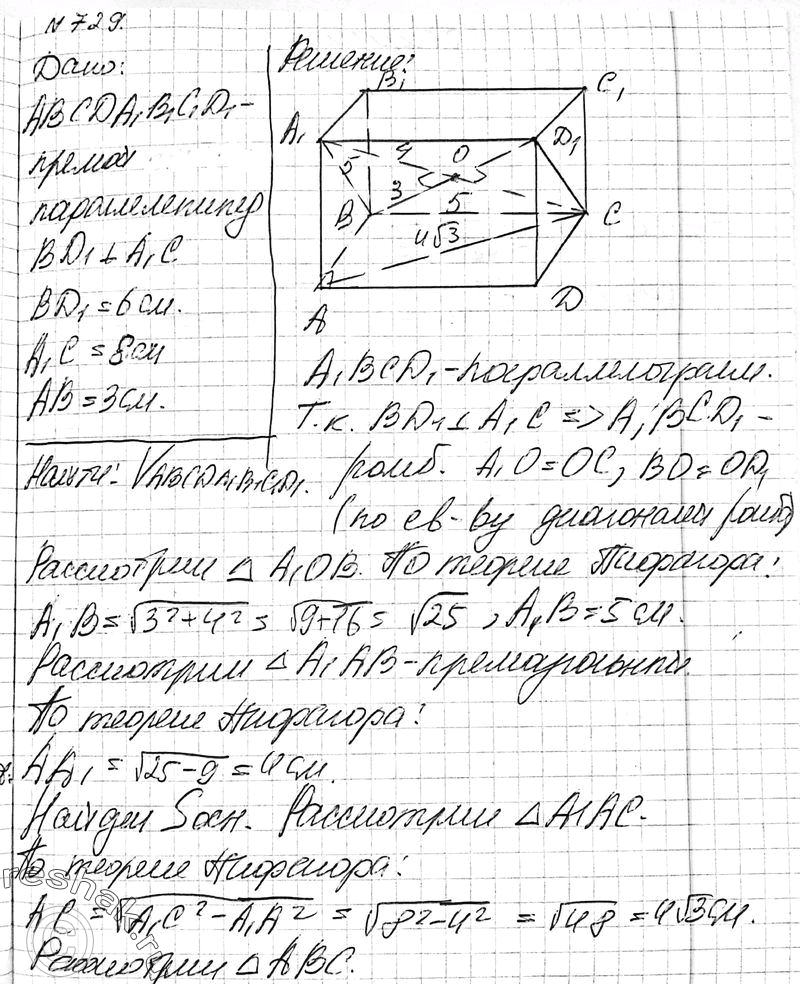 №729.
Дано:
ABCDA₁B₁C₁D₁-
прямой
параллелепипед
BD₁⊥A₁C
BD₁=6см.
A₁C=8см
AB=3см.
Найти: VABCDA₁B₁C₁D₁.
Решение:
B₁
C₁
A₁
D₁
5
4
O
3
B
5
C
4√3
A
D
A₁BCD₁-параллелограмм.
Т.к. BD₁⊥A₁C => A₁BCD₁-
ромб. A₁O=OC, BO=OD₁
(по св-ву диагоналей ромба)
Рассмотрим △ A₁OB. По теореме Пифагора:
A₁B=√3²+4² = √9+16 = √25, A₁B=5см.
Рассмотрим △A₁AB-прямоугольный.
По теореме Пифагора:
AA₁=√25-9=4см.
Найдем Sосн. Рассмотрим △A₁AC.
По теореме Пифагора:
AC=√A₁C²-A₁A² = √8²-4² = √48 = 4√3см.
Рассмотрим △ABC.
reshak.ru
©